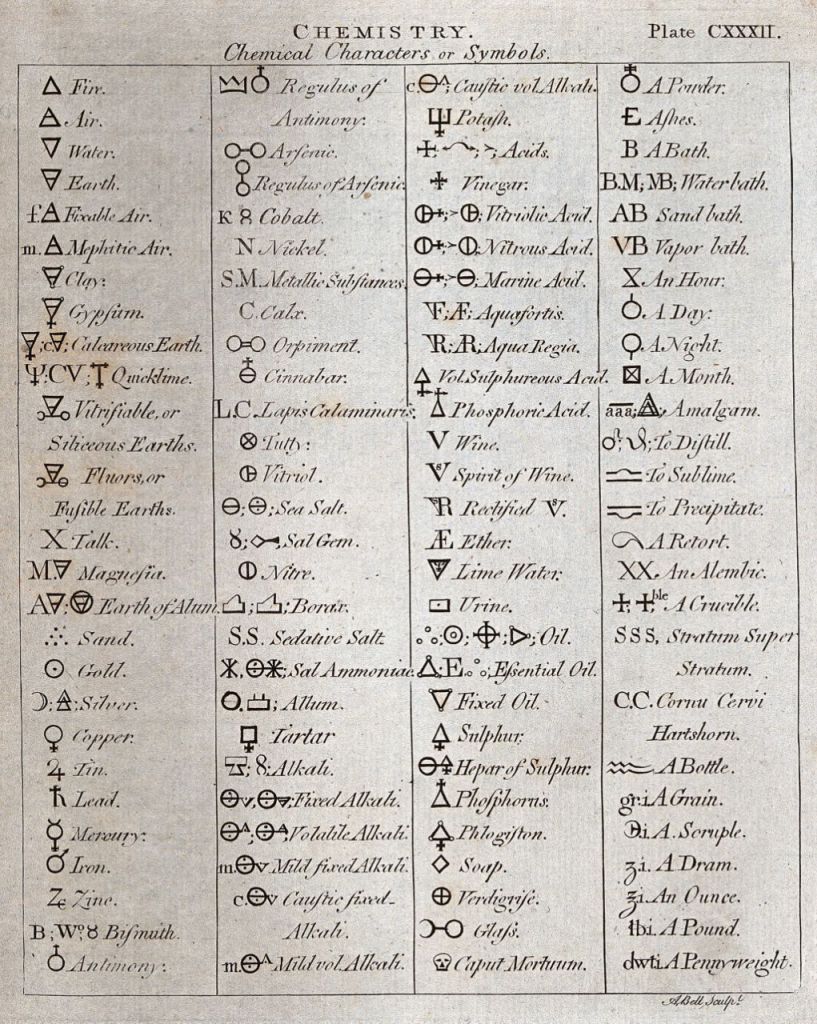 CHEMISTRY.
Plate CXXXII.
Chemical Characters or Symbols.
🜂 Fire.
🜁 Air.
🜄 Water.
🜃 Earth.
f.🜁 Fixable Air.
m.🜁 Mephitic Air.
Clay.
Gypsum.
Calcareous Earth.
CV; Quicklime.
Vitrifiable, or
Siliceous Earths.
Fluors, or
Fusible Earths.
X Talk.
M.🜃 Magnesia.
A🜃; Earth of Alum.
Sand.
☉ Gold.
☽; Silver.
♀ Copper.
♃ Tin.
♄ Lead.
☿ Mercury.
♂ Iron.
Z Zinc.
B; Wº; 8 Bismuth.
♁ Antimony.
Regulus of
Antimony.
o-o Arsenic.
Regulus of Arsenic.
K 8 Cobalt.
N Nickel.
S.M. Metallic Substances.
C. Calx.
Orpiment.
Cinnabar.
L.C. Lapis Calaminaris.
⊗ Tutty.
Vitriol.
⊖; Sea Salt.
8; Sal Gem.
⦶ Nitre.
Borax.
S.S. Sedative Salt.
Sal Ammoniac.
Allum.
Tartar
8; Alkali.
Fixed Alkali.
Volatile Alkali.
m.⊖v Mild fixed Alkali.
c.⊖v Caustic fixed
Alkali.
m.⊖ Mild vol. Alkali.
c.⊖; Caustic vol. Alkali.
Potash.
Acids.
Vinegar.
Vitriolic Acid.
Nitrous Acid.
Marine Acid.
Æ; Aquafortis.
Aqua Regia.
Vol. Sulphureous Acid.
Phosphoric Acid.
V Wine.
Spirit of Wine.
Rectified V.
Æ Ether.
Lime Water.
Urine.
Oil.
E; Essential Oil.
Fixed Oil.
🜍 Sulphur.
Hepar of Sulphur.
Phosphorus.
Phlogiston.
◇ Soap.
⊕ Verdigrise.
Glass.
Caput Mortuum.
♁ A Powder.
E Ashes.
B A Bath.
B.M; MB; Water bath.
AB Sand bath.
VB Vapor bath.
X An Hour.
A Day.
A Night.
⊠ A Month.
aaa; Amalgam.
To Distill.
To Sublime.
To Precipitate.
A Retort.
XX. An Alembic.
ble A Crucible.
SSS, Stratum Super
Stratum.
C.C. Cornu Cervi
Hartshorn.
A Bottle.
gr.i A Grain.
℈i A. Scruple.
ʒi. A Dram.
℥i. An Ounce.
lbi. A Pound.
dwti A Pennyweight.
A. Bell Sculp.t